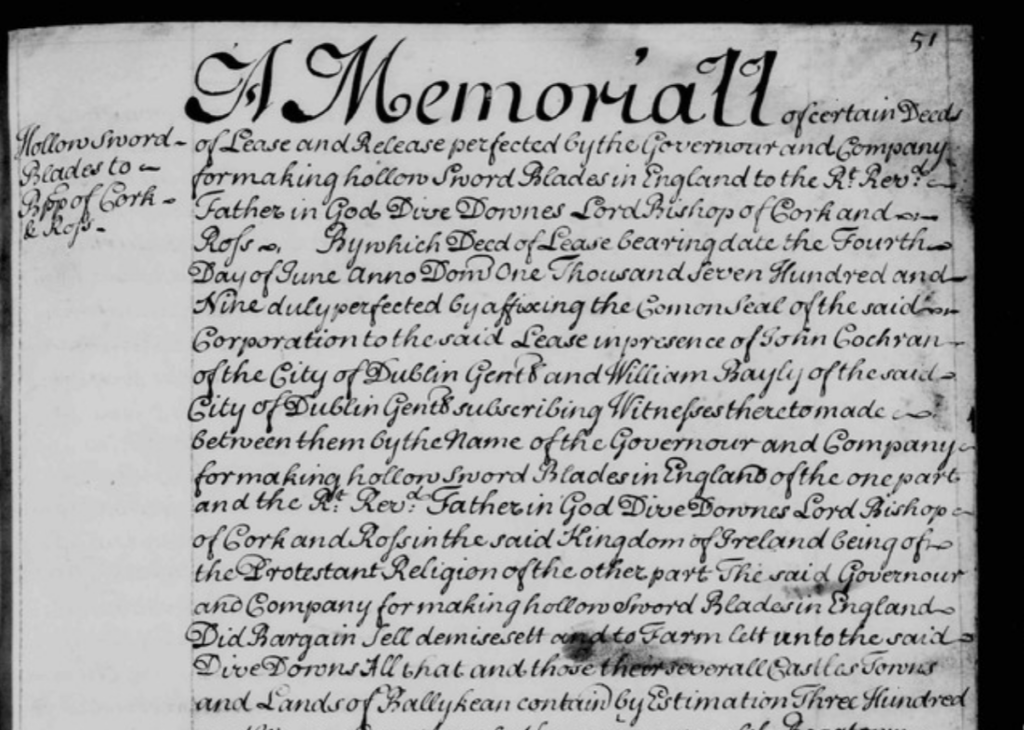 51
A Memoriall of certain Deeds
Hollow Sword
Blades to
Bpp of Cork
& Ross
of Lease and Release perfected by the Governour and Company
for making hollow Sword Blades in England to the Rt. Revd.
Father in God Dive Downes Lord Bishop of Cork and
Ross. By which Deed of Lease bearing date the Fourth
Day of June Anno Dom One Thousand Seven Hundred and
Nine duly perfected by affixing the Comon Seal of the said
Corporation to the said Lease in presence of John Cochran
of the City of Dublin Gent and William Bayly of the said
City of Dublin Gent subscribing Witnesses thereto made
between them by the Name of the Governour and Company
for making hollow Sword Blades in England of the one part
and the Rt. Revd. Father in God Dive Downes Lord Bishop
of Cork and Ross in the said Kingdom of Ireland being of
the Protestant Religion of the other part The said Governour
and Company for making hollow Sword Blades in England
Did Bargain Sell demise sett and to Farm lett unto the said
Dive Downs All that and those their severall Castles Towns
and Lands of Ballykean contain by Estimation Three Hundred